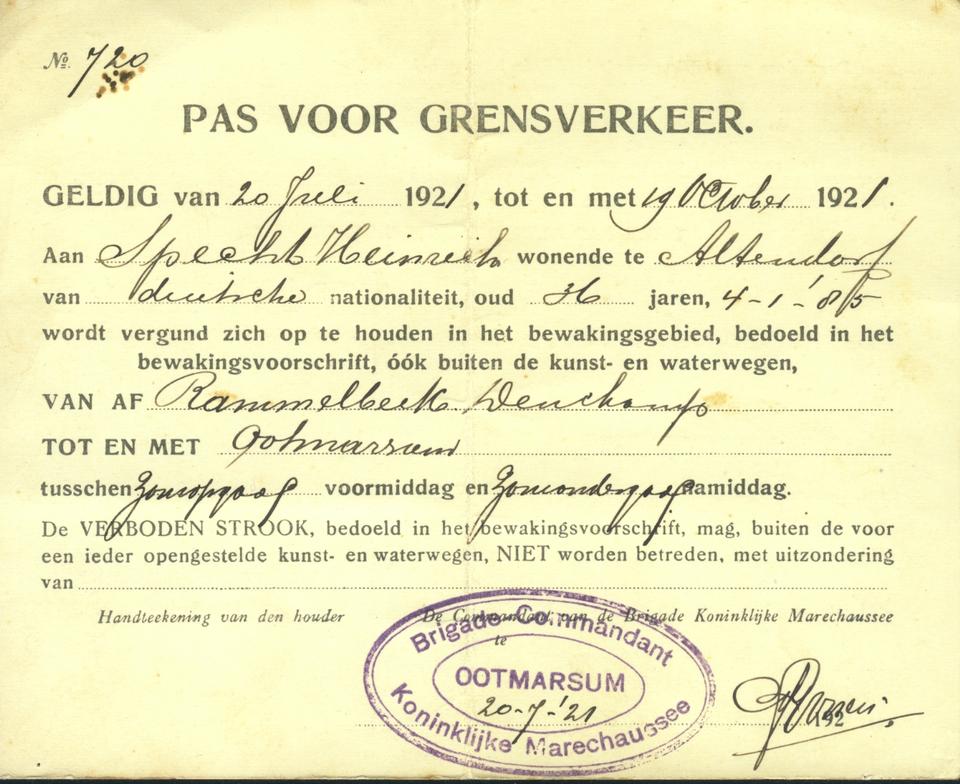 No. 720
PAS VOOR GRENSVERKEER.
GELDIG van 20 Juli 1921, tot en met 19 October 1921.
Aan Specht Heinrich wonende te Altendorf
van deutsche nationaliteit, oud 36 jaren, 4-1-'85
wordt vergund zich op te houden in het bewakingsgebied, bedoeld in het
bewakingsvoorschrift, óók buiten de kunst- en waterwegen,
VAN AF Rammelbeek
TOT EN MET Ootmarsum
tusschen Zonsopgang voormiddag en Zonsondergang namiddag.
De VERBODEN STROOK, bedoeld in het bewakingsvoorschrift, mag, buiten de voor
een ieder opengestelde kunst- en waterwegen, NIET worden betreden, met uitzondering
van
Handteekening van den houder De Commandant van de Brigade Koninklijke Marechaussee
te
Brigade Commandant
OOTMARSUM
20-7-'21
Koninklijke Marechaussee